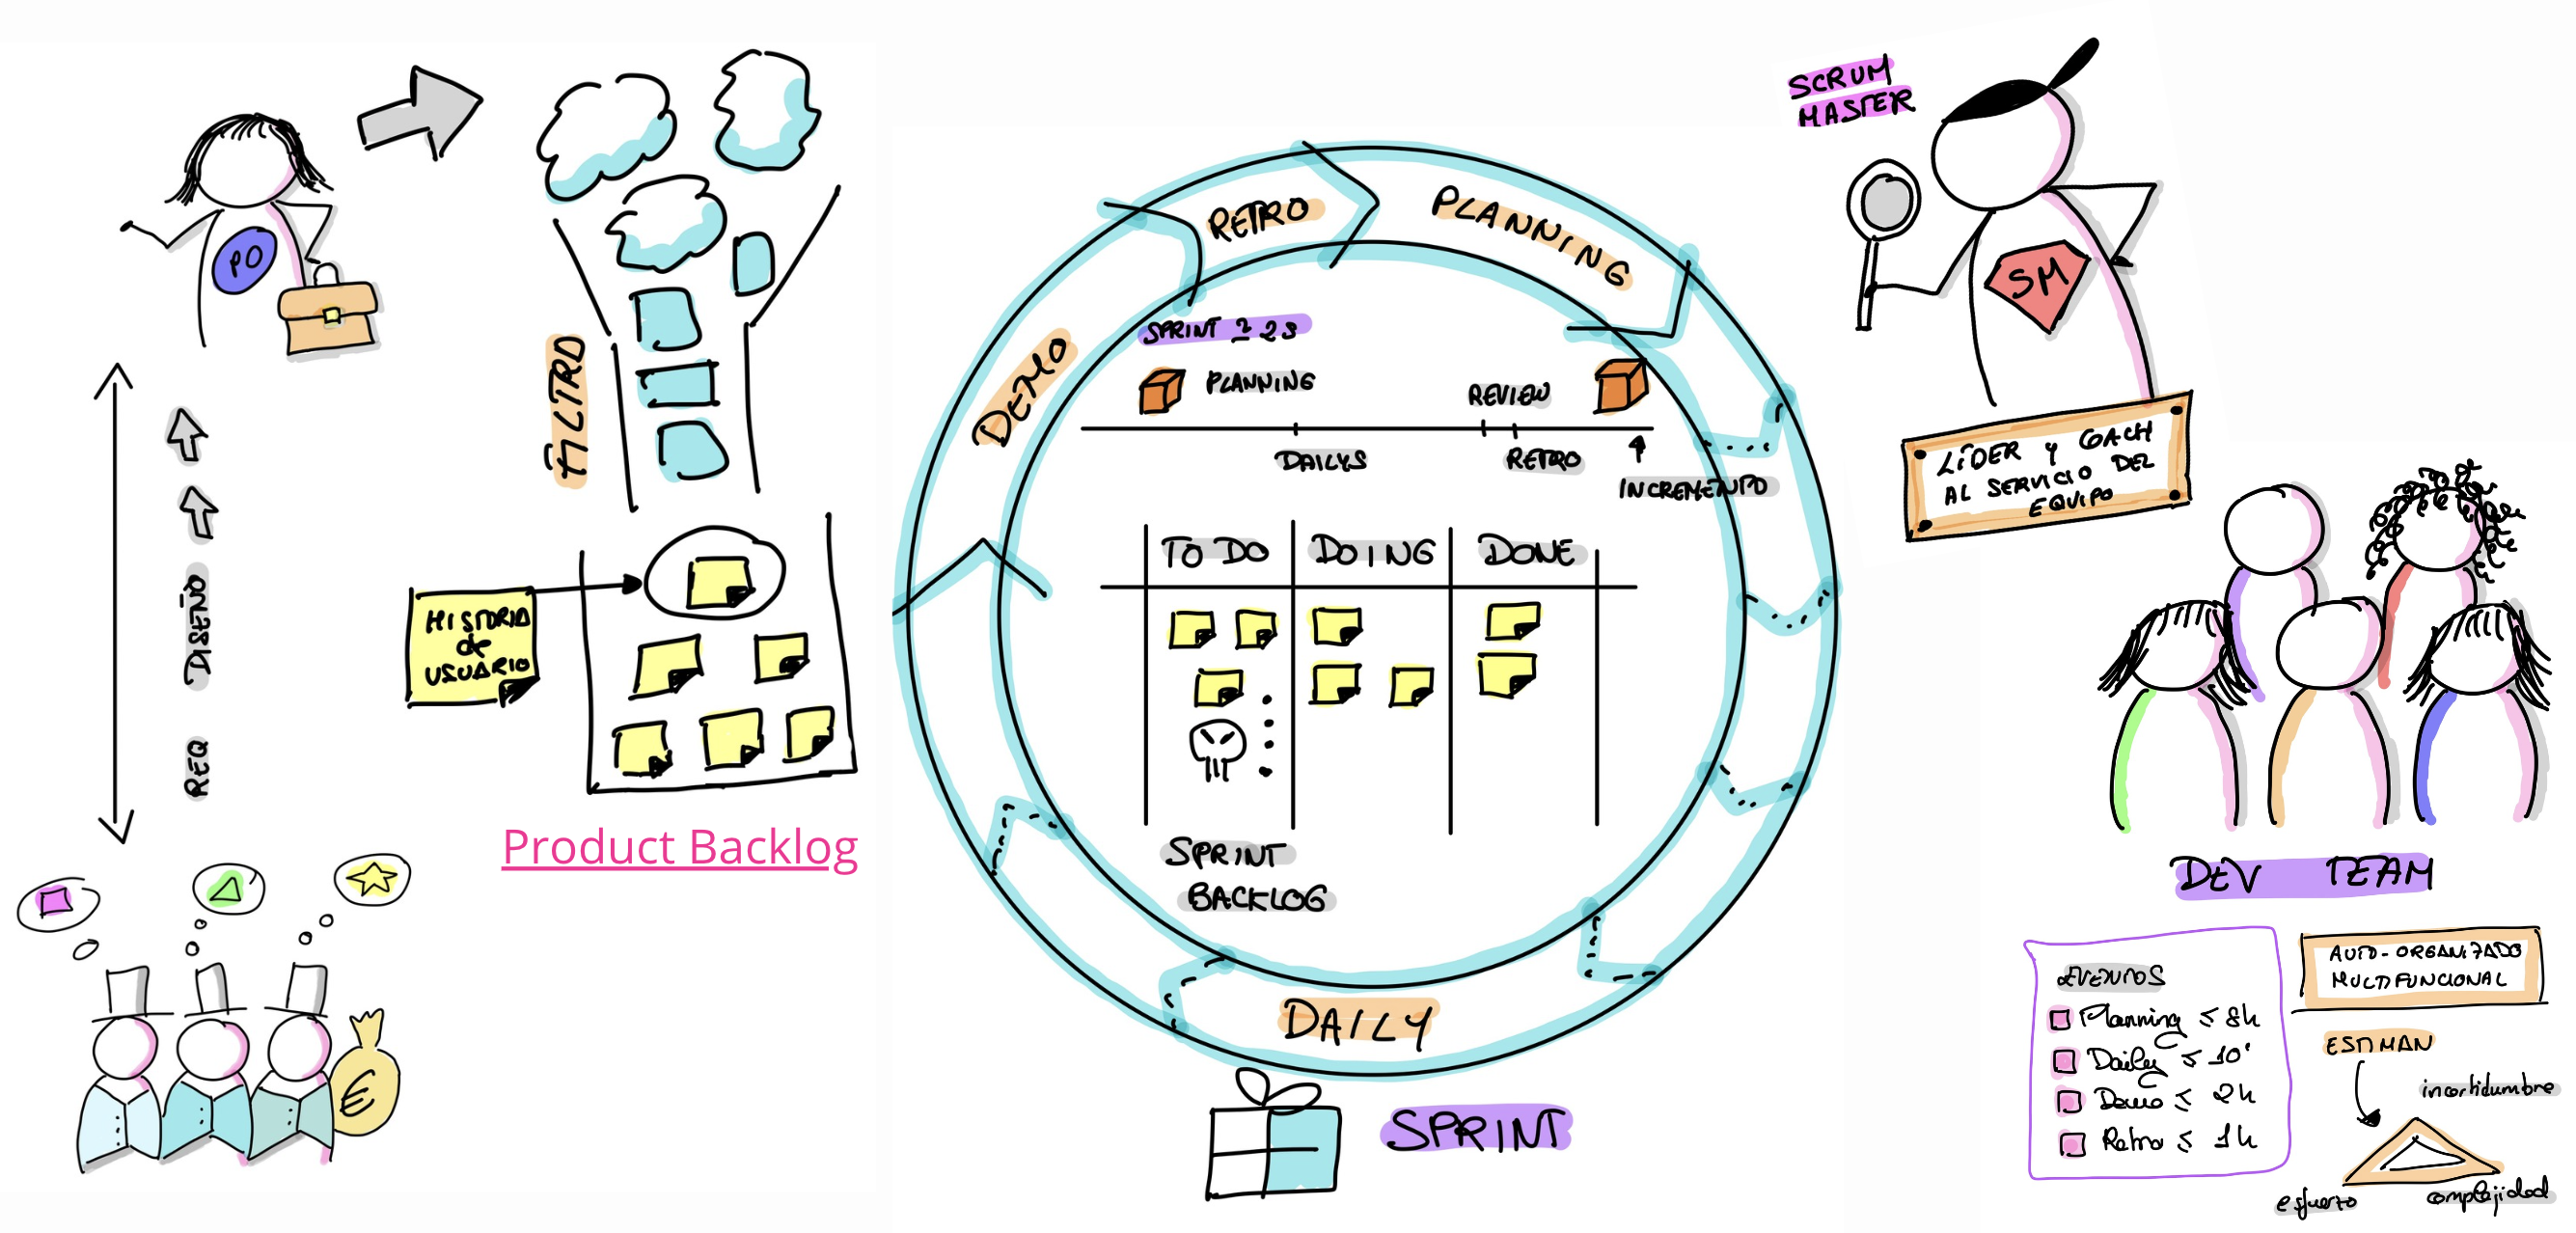 PO
REQ DISEÑO
FILTRO
HISTORIA
de
USUARIO
Product Backlog
€
RETRO
PLANNING
DEMO
DAILY
SPRINT
PLANNING
REVIEW
DAILYS
RETRO
INCREMENTO
TO DO
DOING
DONE
SPRINT
BACKLOG
SPRINT
SCRUM
MASTER
SM
LÍDER Y COACH
AL SERVICIO DEL
EQUIPO
DEV TEAM
EVENTOS
Planning ≤ 8h
Daily ≤ 10'
Demo ≤ 2h
Retro ≤ 1h
AUTO-ORGANIZADO
MULTIFUNCIONAL
ESTIMAN
incertidumbre
esfuerzo
complejidad